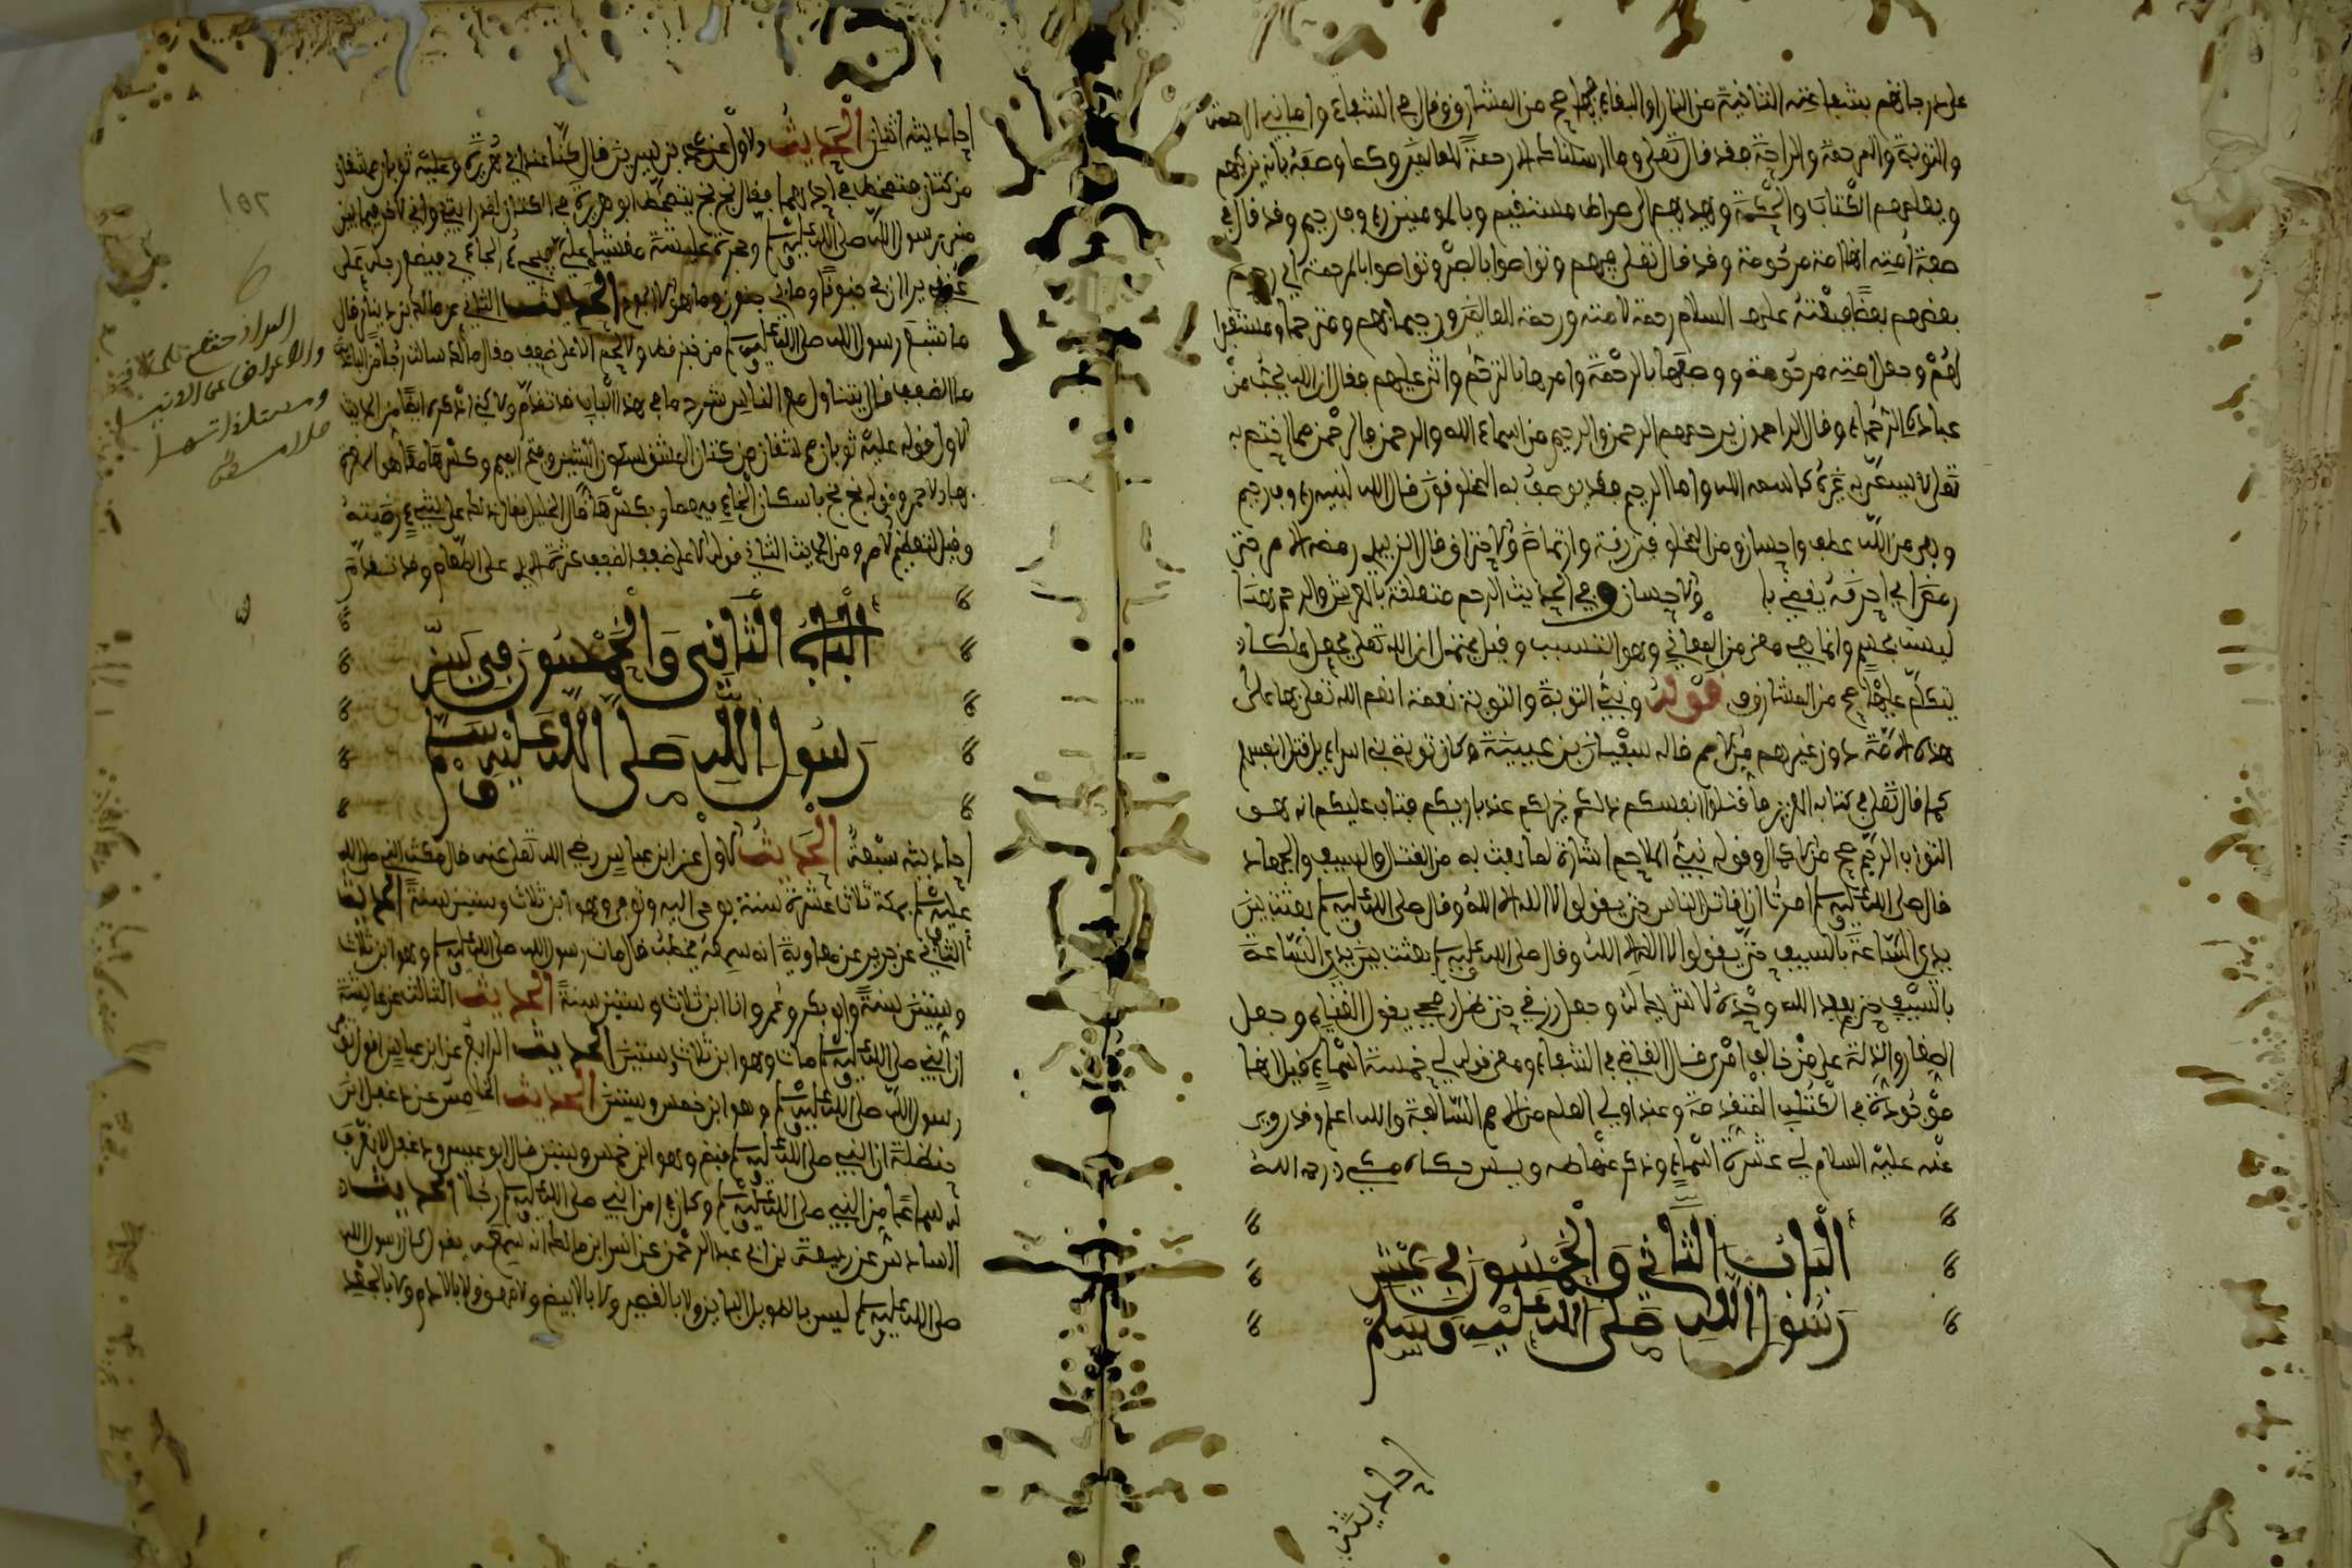 والتوبة والمرحمة والراحة فقد قال تعلى وما ارسلناك الا رحمة للعالمين وكما وصفه بانه يزكيهم
ويعلمهم الكتاب والحكمة ويهديهم الى صراط مستقيم وبالمومنين روف رحيم وقد قال في
صفة امته انها امة مرحومة وقد قال تعلى فيهم وتواصوا بالصبر وتواصوا بالمرحمة اي يرحم
بعضهم بعضا فبعثه عليه السلام رحمة لامته ورحمة للعالمين ورحيما بهم ومترحما ومستغفرا
لهم وجعل امته مرحومة ووصفها بالرحمة وامرها بالتراحم واثنى عليهم فقال ان الله يحب من
عباده الرحماء وقال الراحمون يرحمهم الرحمن والرحيم من اسماء الله والرحمن
تعلى لا يسمى به غيره كاسمه الله واما الرحيم فقد يوصف به المخلوقون قال الله لنبيه روف رحيم
وهي من الله عطف واحسان ومن المخلوقين رقة
والاحسان وفي الحديث الرحم متعلقة بالعرش والرحم هذا
ليست بجسم وانما هي معنى من المعاني وهو النسب وقيل يحتمل ان الله تعلى يجعل ملكا
يتكلم عليها صح من المشارق قوله ونبي التوبة والتوبة نعمة انعم الله تعلى بها على
هذه الامة دون غيرهم من الامم قاله سفيان بن عيينة وكان توبة بني اسراءيل قتل انفسهم
كما قال تعلى في كتابه العزيز فاقتلوا انفسكم ذلكم خير لكم عند باريكم فتاب عليكم انه هو
التواب الرحيم صح من الاكمال وقوله نبي الملاحم اشارة لما بعث به من القتال والسيف والجهاد
قال صلى الله عليه وسلم امرت ان اقاتل الناس حتى يقولوا لا اله الا الله وقال صلى الله عليه وسلم بعثت بين
يدي الساعة بالسيف حتى يقولوا لا اله الا الله وقال صلى الله عليه وسلم بعثت بين يدي الساعة
بالسيف حتى يعبد الله وحده لا شريك له وجعل رزقي تحت ظل رمحي وجعل
الصغار والذلة على من خالف امري قال القاضي في الشفاء ومعنى قوله لي خمسة اسماء قيل انها
موجودة في الكتب المتقدمة وعند اولي العلم من الامم السالفة والله اعلم وقد روي
عنه عليه السلام لي عشرة اسماء وذكر منها طه ويس حكاه مكي رحمه الله
الباب الثاني والخمسون في عيش
رسول الله صلى الله عليه وسلم
احاديثه
احاديثه اثنان الحديث الاول عن محمد بن سيرين قال كنا عند ابي هريرة وعليه ثوبان ممشقان
من كتان فتمخط في احدهما فقال بخ بخ يتمخط ابو هريرة في الكتان لقد رايتني واني لاخر فيما بين
منبر رسول الله صلى الله عليه وسلم وحجرة عايشة مغشيا علي فيجيء الجاءي فيضع رجله على
عنقي يرى ان بي جنونا وما بي جنون وما هو الا الجوع الحديث الثاني عن مالك بن دينار قال
ما شبع رسول الله صلى الله عليه وسلم من خبز قط ولا لحم الا على ضفف فقال مالك سالت رجلا من اهل البادية
ما الضفف قال يتناول مع الناس شرح ما في هذا الباب قد تقدم
الاول قوله عليه ثوبان ممشقان من كتان المشق
وقوله بخ بخ باسكان الخاء فيهما وبكسرها قال الخليل يقال ذلك على الشيء رضيته
وقيل لتعظيم الامر ومن الحديث الثاني قوله الا على ضفف الضفف كثرة الايدي على الطعام وقد تقدم
الباب الثاني والخمسون في سن
رسول الله صلى الله عليه وسلم
احاديثه سبعة الحديث الاول عن ابن عباس رضي الله تعلى عنه قال مكث النبي صلى الله
عليه وسلم بمكة ثلاث عشرة سنة يوحى اليه وتوفي وهو ابن ثلاث وستين سنة الحديث
الثاني عن جرير عن معاوية انه سمعه يخطب قال مات رسول الله صلى الله عليه وسلم وهو ابن ثلاث
وستين سنة وابو بكر وعمر وانا ابن ثلاث وستين سنة الحديث الثالث عن عايشة
ان النبي صلى الله عليه وسلم مات وهو ابن ثلاث وستين الحديث الرابع عن ابن عباس توفي
رسول الله صلى الله عليه وسلم وهو ابن خمس وستين الحديث الخامس عن دغفل ابن
حنظلة ان النبي صلى الله عليه وسلم قبض وهو ابن خمس وستين قال ابو عيسى ودغفل لا نعرف
له سماعا من النبي صلى الله عليه وسلم وكان في زمن النبي صلى الله عليه وسلم رجلا الحديث
السادس عن ربيعة بن ابي عبد الرحمن عن انس ابن مالك انه سمعه يقول كان رسول الله
صلى الله عليه وسلم ليس بالطويل الباين ولا بالقصير ولا بالابيض الامهق ولا بالادم ولا بالجعد
١٥٢